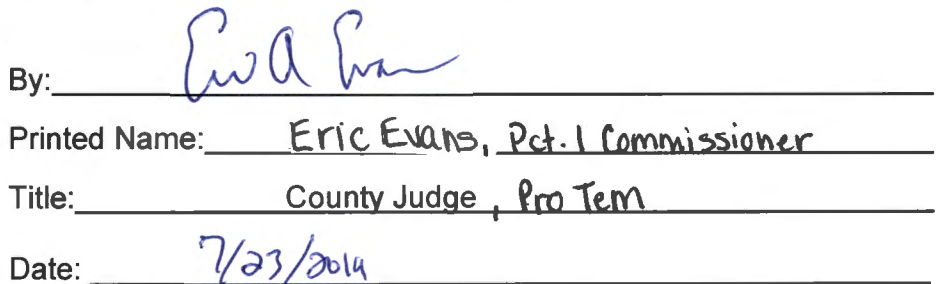 By: Eric A Evans
Printed Name: Eric Evans, Pct. 1 Commissioner
Title: County Judge, Pro Tem
Date: 7/23/2014